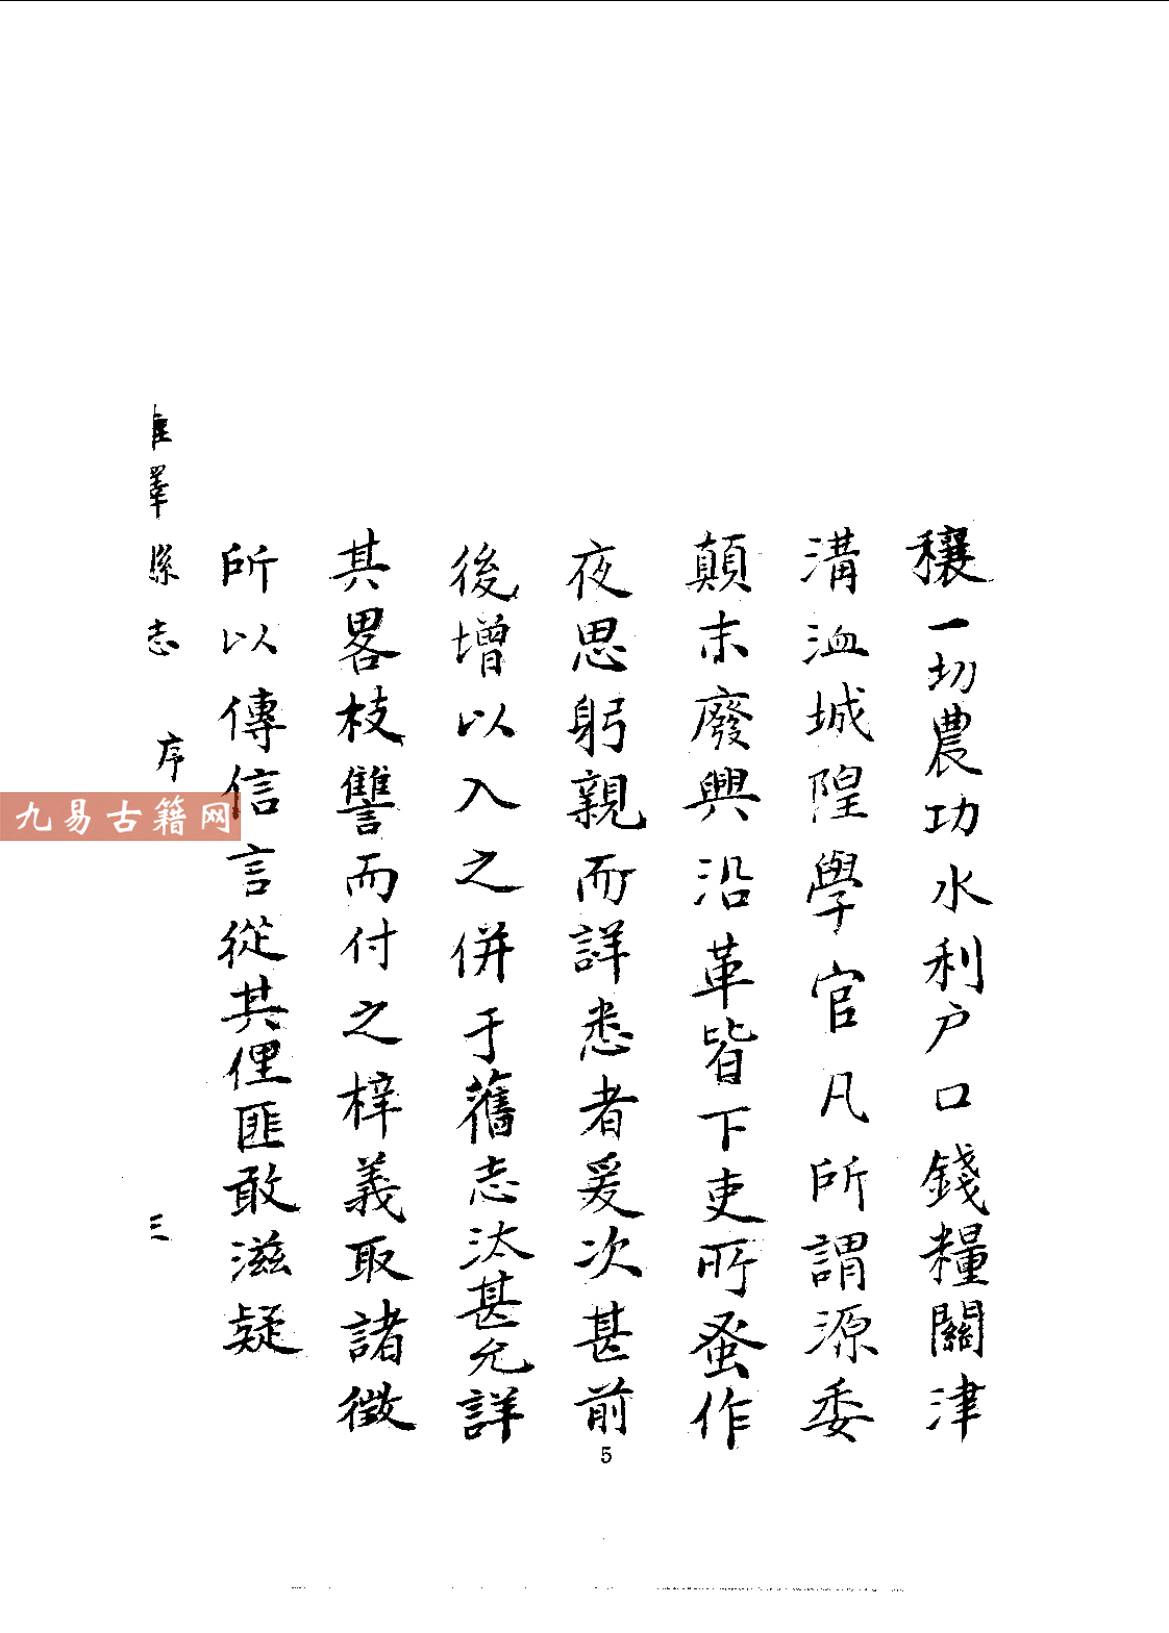 穰一切農功水利户口錢糧關津
溝洫城隍學官凡所謂源委
顛末廢興沿革皆下吏所蚤作
夜思躬親而詳悉者爰次甚前
後增以入之併于舊志汰甚允詳
其畧枝讐而付之梓義取諸徵
所以傳信言從其俚匪敢滋疑
縣志 序 三
九易古籍网
5